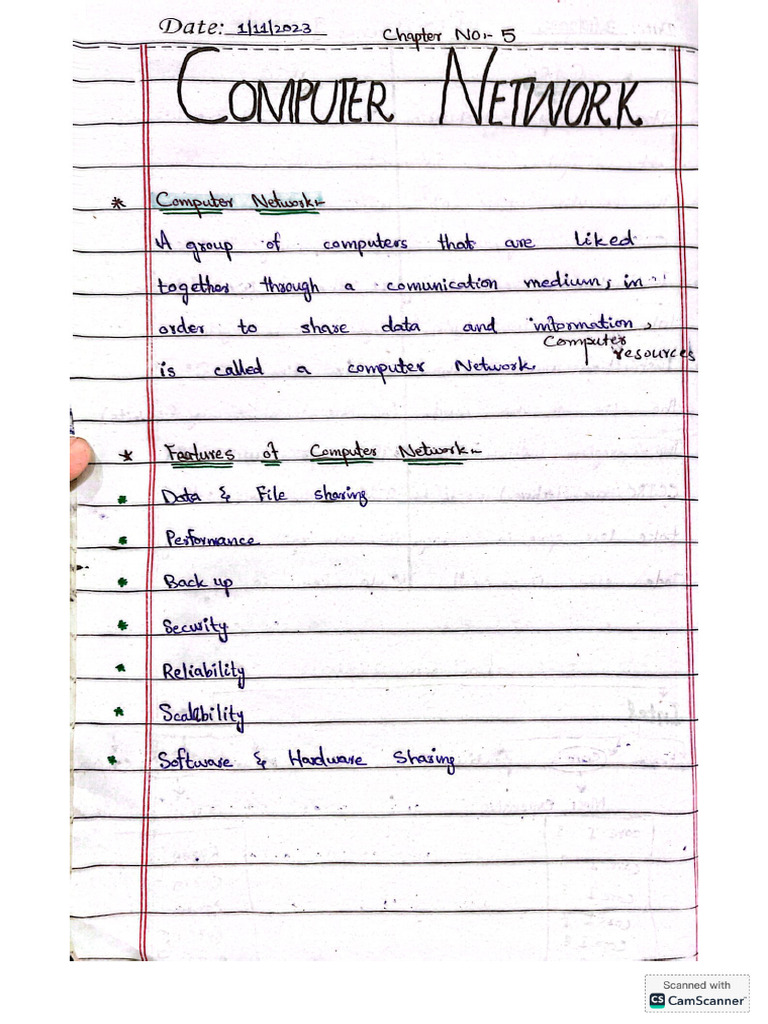 Date: 1/11/2023 Chapter No:- 5
COMPUTER NETWORK
* Computer Network:-
A group of computers that are liked
together through a comunication medium, in
order to share data and information,
Computer resources
is called a computer Network.
* Features of Computer Network:-
* Data & File sharing
* Performance
* Back up
* Security
* Reliability
* Scalability
* Software & Hardware Sharing
Scanned with
CS CamScanner